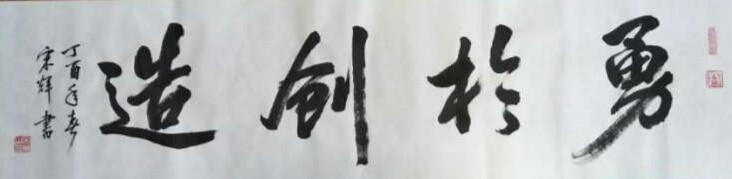 勇於創造
丁酉年春
宋輝書